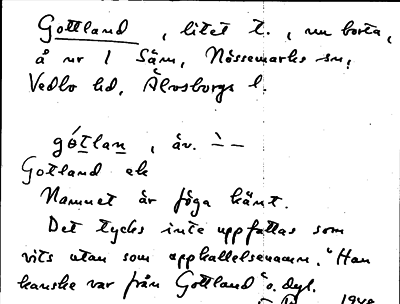 Gottland, litet t., nu borta,
å nr 1 Säm, Nössemarks sn,
Vedbo hd, Älvsborgs l.
gótlan, äv. `–
Gotland ek
Namnet är föga känt.
Det tycks inte uppfattas som
vits utan som apphallelsenamn. "Han
kanske var från Gottland" o. dyl.
1940